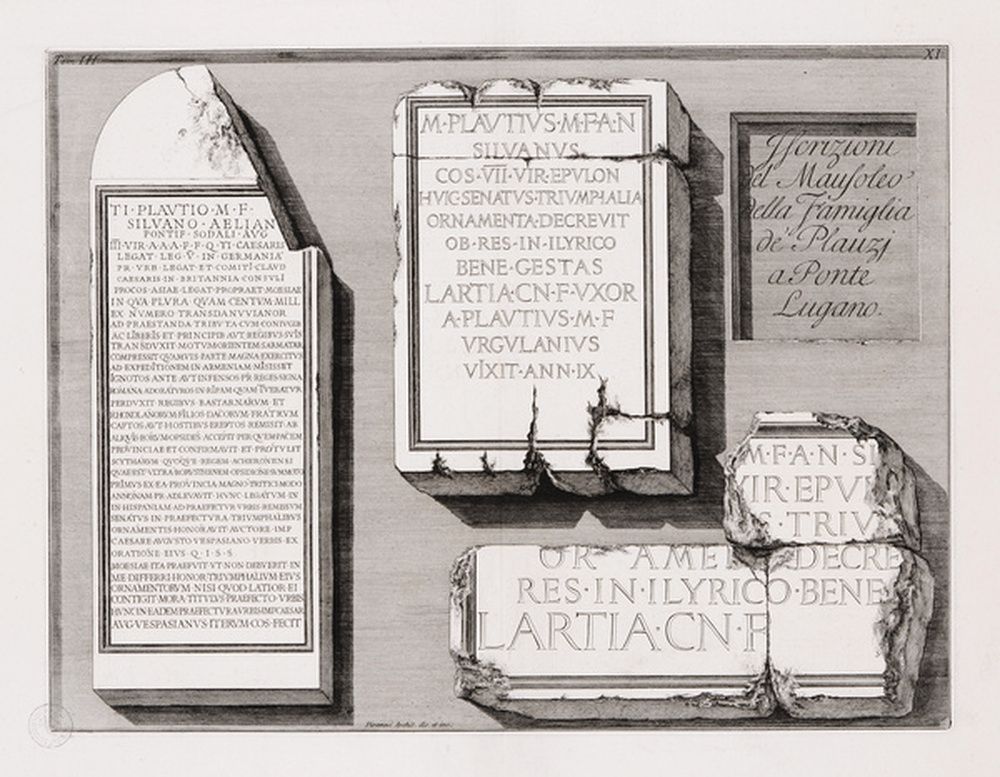 Tom. III
XI
TI·PLAVTIO·M·F·
SILVANO·AELIAN
PONTIF·SODALI·AVG
III·VIR·A·A·A·F·F·Q·TI·CAESARIS
LEGAT·LEG·V·IN·GERMANIA
PR·VRB·LEGAT·ET·COMITI·CLAVD
CAESARIS·IN·BRITANNIA·CONSVLI
PROCOS·ASIAE·LEGAT·PROPRAET·MOESIAE
IN QVA·PLVRA·QVAM·CENTVM·MILL
EX NVMERO TRANSDANVVIANOR
AD PRAESTANDA·TRIBVTA·CVM·CONIVGIB
AC LIBERIS·ET·PRINCIPIB·AVT·REGIBVS·SVIS
TRANSDVXIT·MOTVM·ORIENTEM·SARMATAR
COMPRESSIT QVAMVIS·PARTE·MAGNA·EXERCITVS
AD EXPEDITIONEM·IN·ARMENIAM·MISISSET
IGNOTOS·ANTE·AVT INFENSOS·PR·REGES·SIGNA
ROMANA·ADORATVROS·IN·RIPAM·QVAM TVEBATVR
PERDVXIT·REGIBVS·BASTARNARVM·ET
RHOXOLANORVM·FILIOS·DACORVM·FRATRVM
CAPTOS·AVT·HOSTIBVS·EREPTOS·REMISIT·AB
ALIQVIS·EORVM·OPSIDES·ACCEPIT·PER·QVEM·PACEM
PROVINCIAE·ET·CONFIRMAVIT·ET·PROTVLIT
SCYTHARVM·QVOQVE·REGEM·A·CHERONENSI
QVAE·EST·VLTRA·BORVSTENEN·OPSIDIONE·SVMMOTO
PRIMVS·EX·EA·PROVINCIA·MAGNO·TRITICI·MODO
ANNONAM·P·R·ADLEVAVIT·HVNC·LEGATVM·IN
IN·HISPANIAM·AD·PRAEFECTVR·VRBIS·REMISSVM
SENATVS·IN·PRAEFECTVRA·TRIVMPHALIBVS
ORNAMENTIS·HONORAVIT·AVCTORE·IMP
CAESARE·AVGVSTO·VESPASIANO·VERBIS·EX
ORATIONE·EIVS·Q·I·S·S
MOESIAE·ITA·PRAEFVIT·VT·NON·DEBVERIT·IN
ME·DIFFERRI·HONOR·TRIVMPHALIVM·EIVS
ORNAMENTORVM·NISI·QVOD·LATIOR·EI
CONTIGIT·MORA·TITVLVS·PRAEFECTO·VRBIS
HVNC·IN·EADEM·PRAEFECTVRA·VRBIS·IMP·CAESAR
AVG·VESPASIANVS·ITERVM·COS·FECIT
M·PLAVTIVS·M·F·A·N
SILVANVS
COS·VII·VIR·EPVLON
HVIC·SENATVS·TRIVMPHALIA
ORNAMENTA·DECREVIT
OB·RES·IN·ILYRICO
BENE·GESTAS
LARTIA·CN·F·VXOR
A·PLAVTIVS·M·F
VRGVLANIVS
VIXIT·ANN·IX
Iscrizioni
del Mausoleo
della Famiglia
de' Plauzj
a Ponte
Lugano.
M·F·A·N·SI
VIR·EPVL
S·TRIV
OR AME DECRE
RES·IN·ILYRICO·BENE
LARTIA·CN·F
Piranesi Archit. dis. et inc.